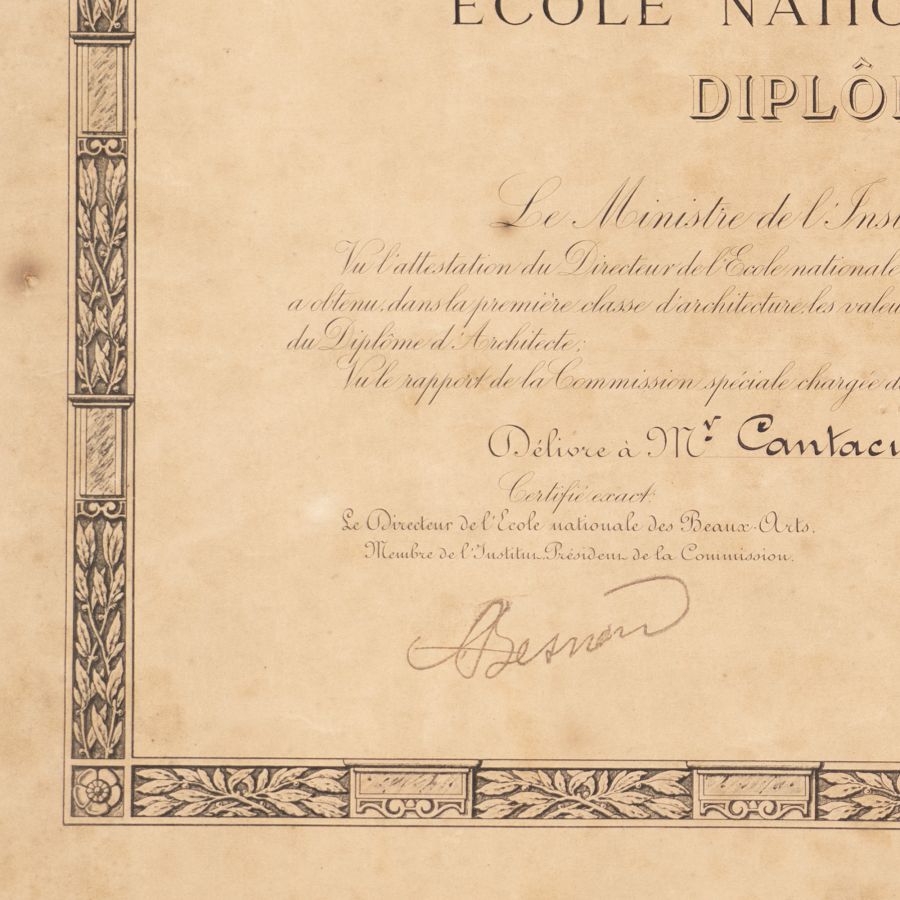 ECOLE NATIO
DIPLÔ
Le Ministre de l'Inst
Vu l'attestation du Directeur de l'Ecole nationale
a obtenu, dans la première classe d'architecture, les valeu
du Diplôme d'Architecte;
Vu le rapport de la Commission spéciale chargée d
Délivre à Mr Cantacu
Certifié exact:
Le Directeur de l'Ecole nationale des Beaux-Arts.
Membre de l'Institut, Président de la Commission.
ABesnard